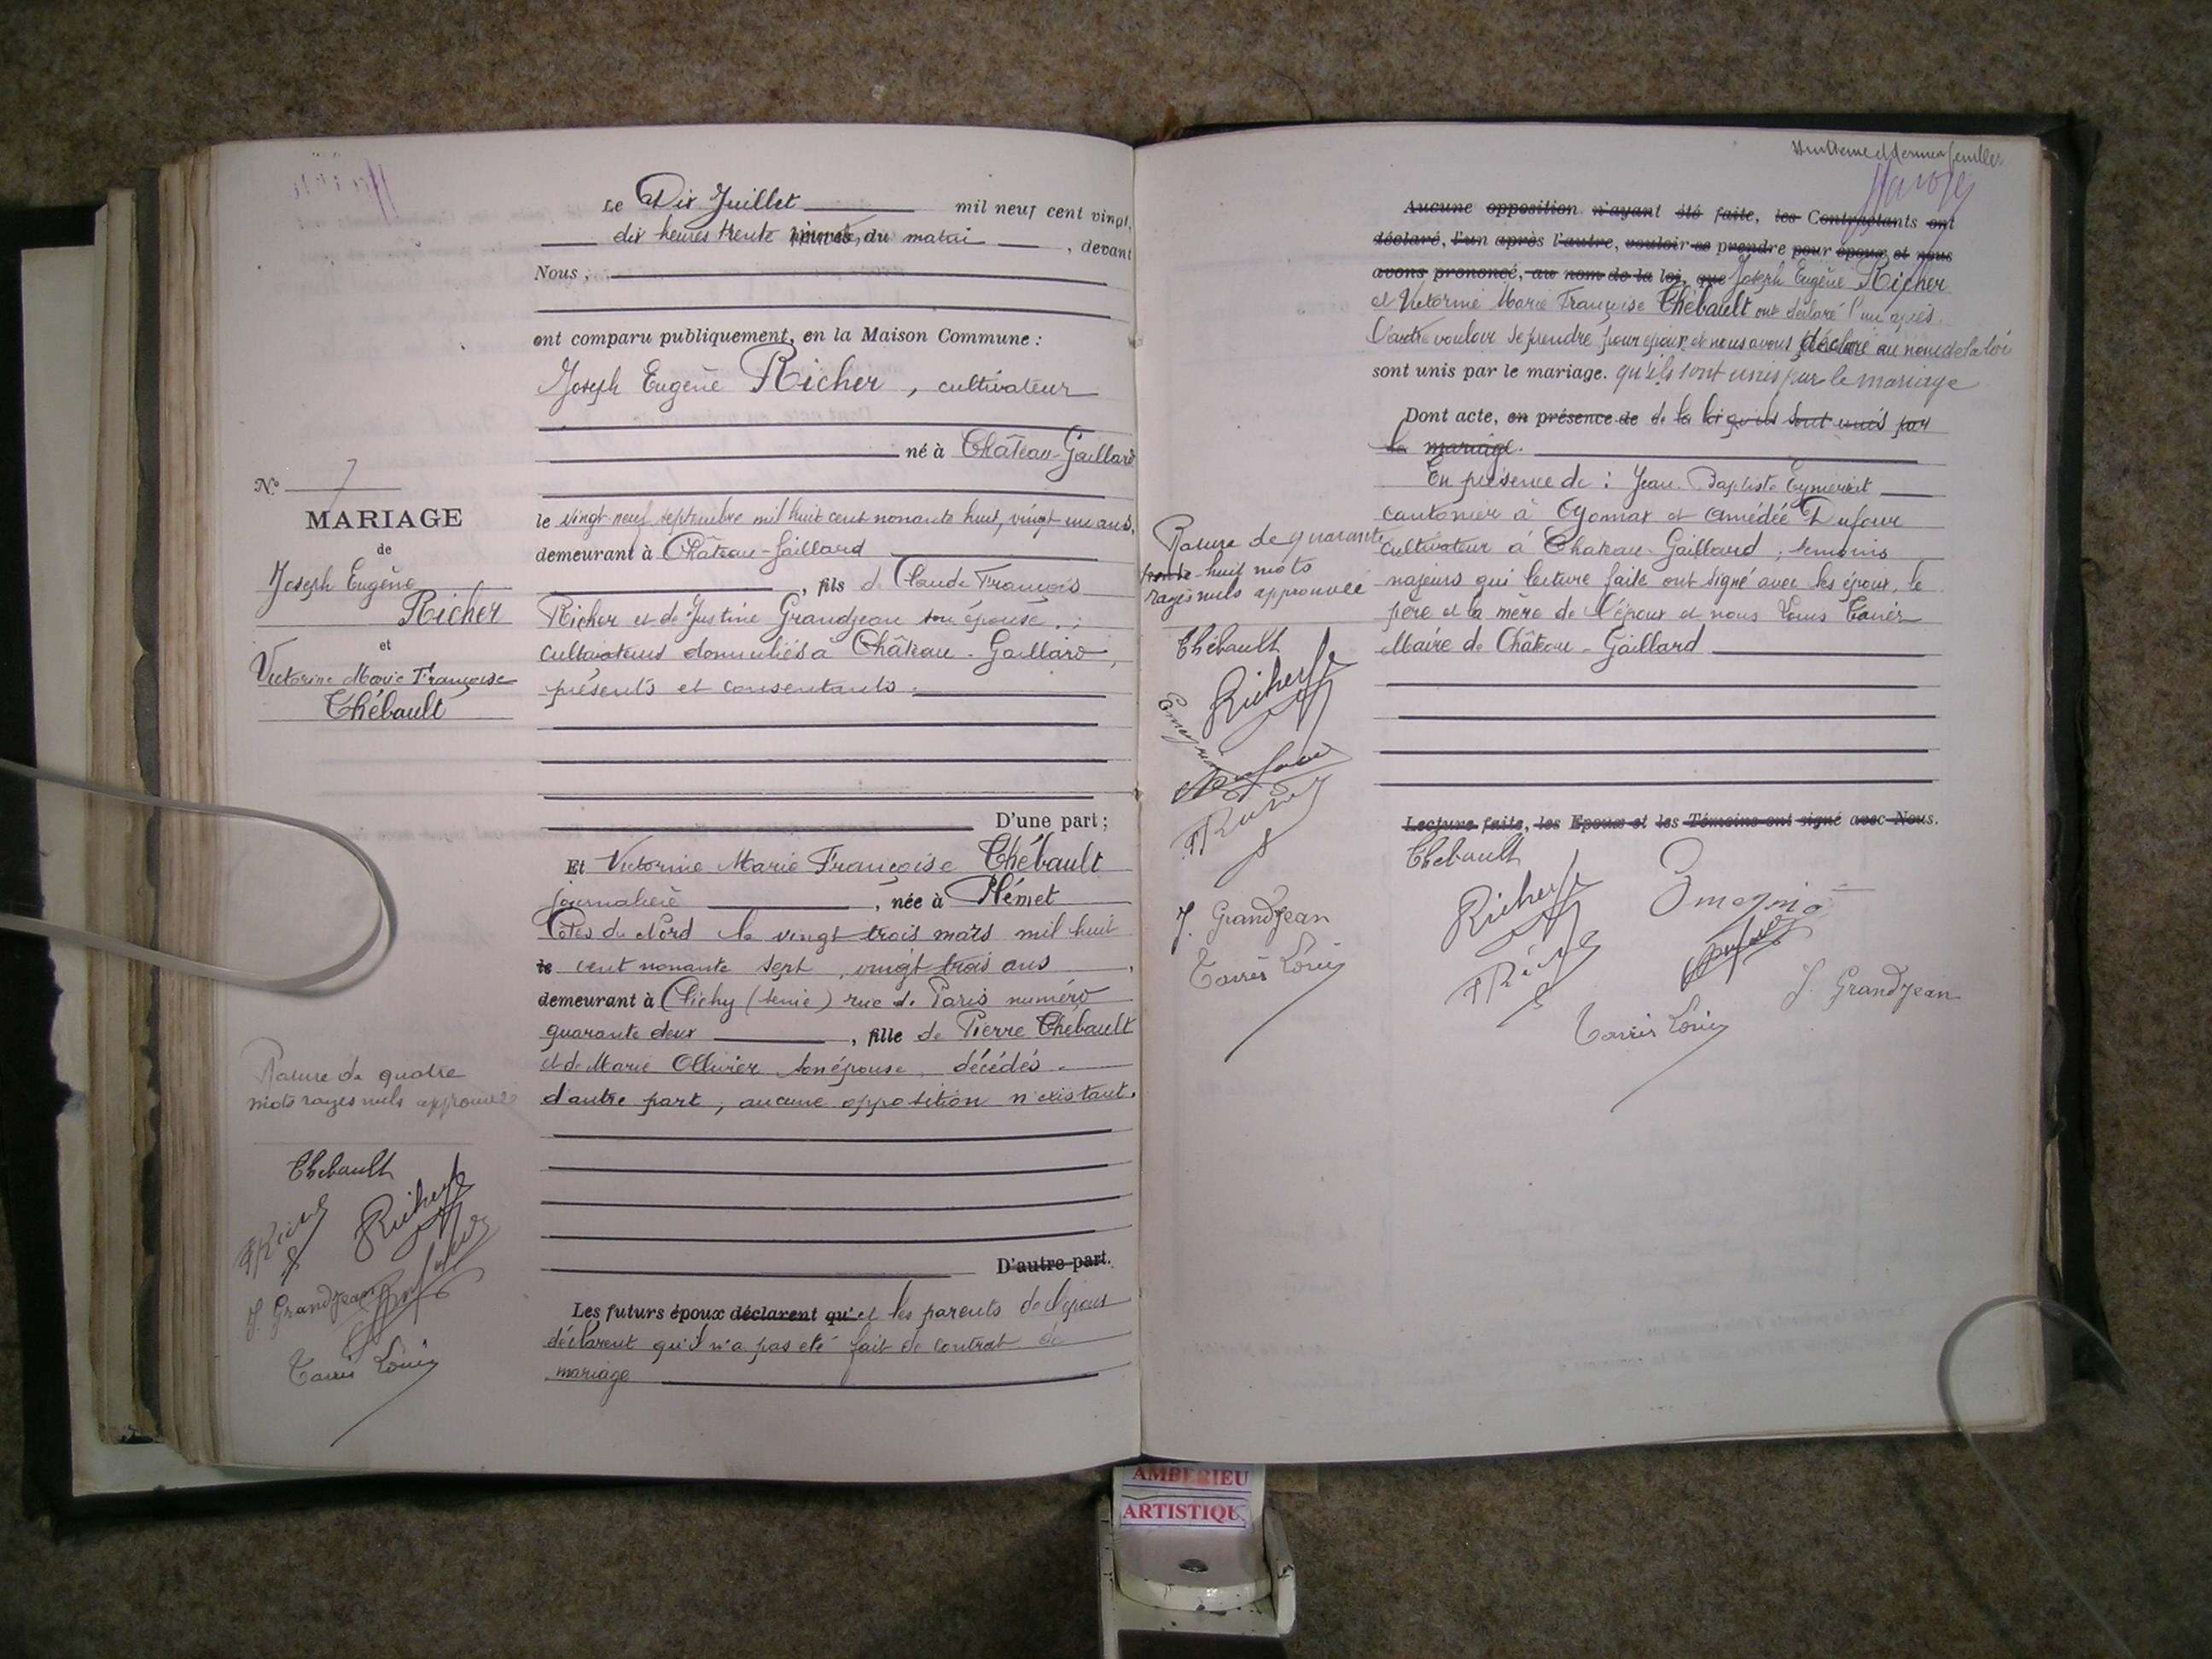 Le Dix Juillet mil neuf cent vingt,
dix heures trente du matin, devant
Nous,
ont comparu publiquement, en la Maison Commune :
Joseph Eugène Richer, cultivateur
né à Château-Gaillard
le vingt-neuf septembre mil huit cent nonante huit, vingt un ans,
demeurant à Château-Gaillard
, fils de Claude François
Richer et de Justine Grandjean son épouse,
cultivateurs domiciliés à Château-Gaillard,
présents et consentants.
D'une part ;
Et Victorine Marie Françoise Thébault
journalière, née à Plémet
Côtes du Nord le vingt trois mars mil huit
le cent nonante sept, vingt trois ans,
demeurant à Clichy (Seine) rue de Paris numéro
quarante deux, fille de Pierre Thébault
et de Marie Ollivier son épouse, décédés.
d'autre part, aucune opposition n'existant.
D'autre part.
Les futurs époux déclarent qu' et les parents de l'époux
déclarent qu'il n'a pas été fait de contrat de
mariage
N.º 7
MARIAGE
de
Joseph Eugène
Richer
et
Victorine Marie Françoise
Thébault
Rature de quatre
mots rayés nuls approuvée
Thebault
Richer
J. Grandjean
Aucune opposition n'ayant été faite, les Contractants ont
déclaré, l'un après l'autre, vouloir se prendre pour époux et nous
avons prononcé, au nom de la loi, que Joseph Eugène Richer
et Victorine Marie Françoise Thébault ont déclaré l'un après
l'autre vouloir se prendre pour époux et nous avons déclaré au nom de la loi
sont unis par le mariage. qu'ils sont unis par le mariage
Dont acte, en présence de de la loi qu'ils sont unis par
le mariage.
En présence de : Jean Baptiste
cantonier à Oyonnax et Amédée Dufour
cultivateur à Chateau-Gaillard, temoins
majeurs qui lecture faite ont signé avec les époux, le
père et la mère de l'époux et nous Louis
Maire de Château-Gaillard
Lecture faite, les Epoux et les Témoins ont signé avec Nous.
Thebault
Richer
J. Grandjean
Rature de quarante
trente-huit mots
rayés nuls approuvée
Thébault
Richer
J. Grandjean
AMBERIEU
ARTISTIQU